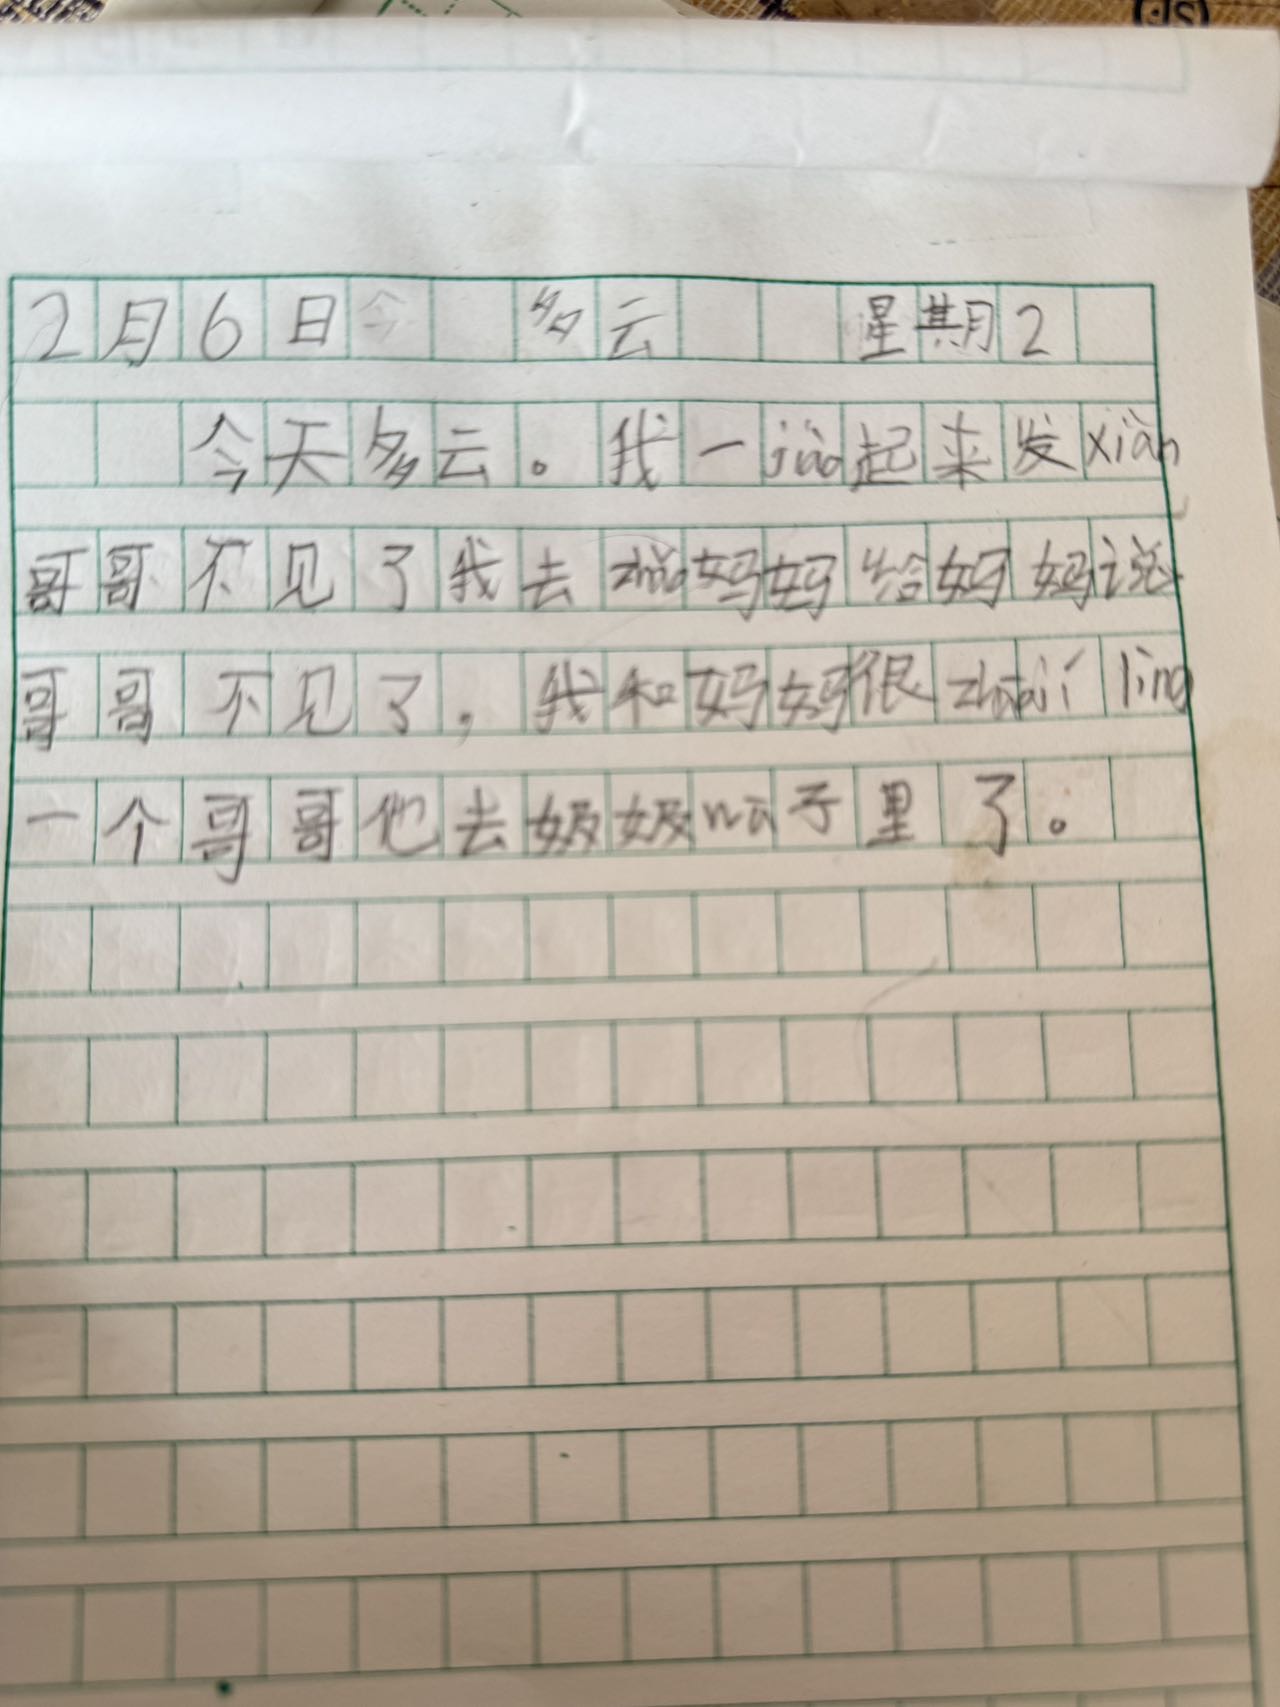 2月6日 多云 星期2
今天多云。我一jiào起来发xiàn
哥哥不见了我去zhǎo妈妈给妈妈说
哥哥不见了，我和妈妈很zháojí lìng
一个哥哥他去奶奶wū子里了。